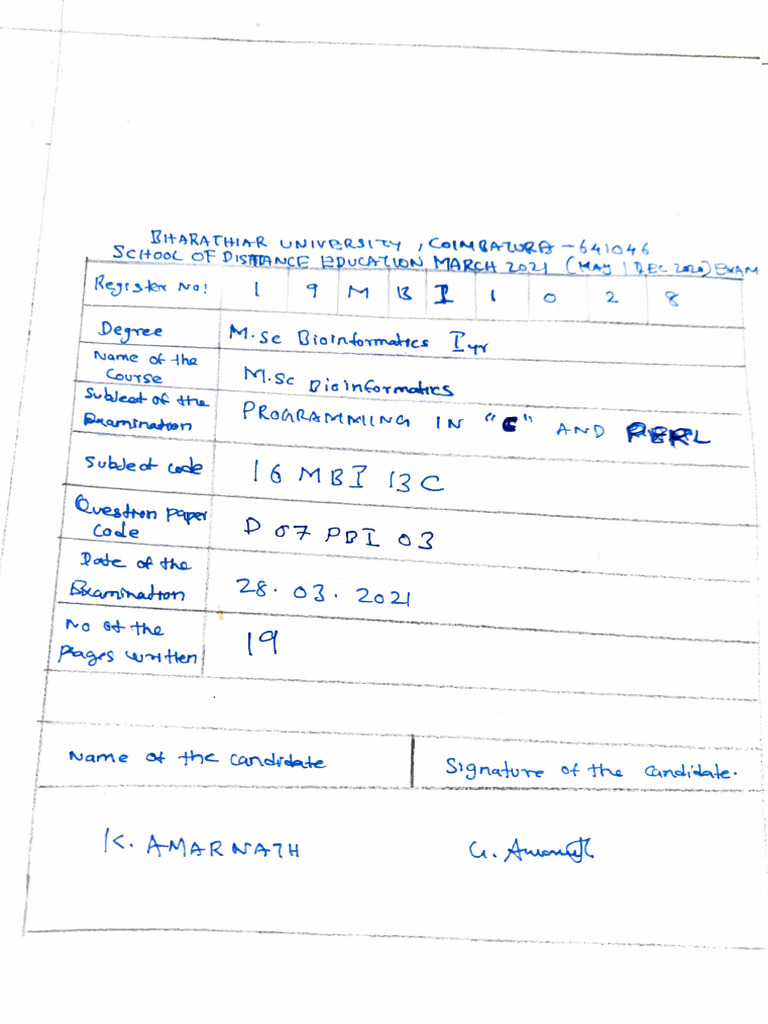 BHARATHIAR UNIVERSITY, COIMBATORE - 641046
SCHOOL OF DISTANCE EDUCATION MARCH 2021 (MAY | DEC 2020) EXAM
Register No: 1 9 M B I 1 0 2 8
Degree M.Sc Bioinformatics I yr
Name of the
Course M.Sc Bioinformatics
Subject of the
Examination PROGRAMMING IN "C" AND PERL
Subject code 16 MBI 13C
Question paper
Code D 07 PBI 03
Date of the
Examination 28.03.2021
No of the
pages written 19
Name of the candidate Signature of the candidate.
K. AMARNATH